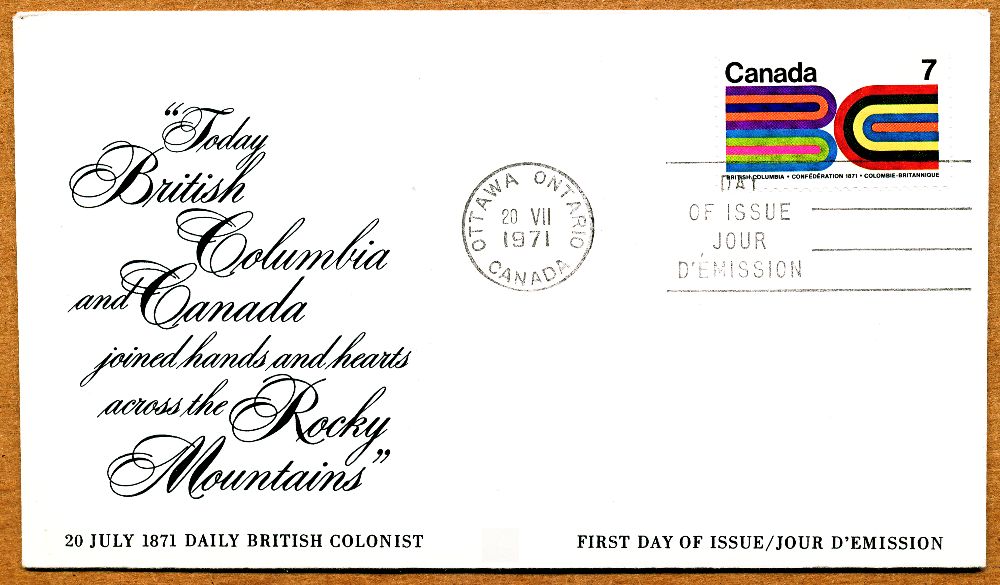 “Today
British
Columbia
and Canada
joined hands and hearts
across the Rocky
Mountains”
20 JULY 1871 DAILY BRITISH COLONIST
Canada 7
BRITISH COLUMBIA • CONFÉDÉRATION 1871 • COLOMBIE-BRITANNIQUE
OTTAWA ONTARIO
20 VII
1971
CANADA
DAY
OF ISSUE
JOUR
D'ÉMISSION
FIRST DAY OF ISSUE/JOUR D'EMISSION